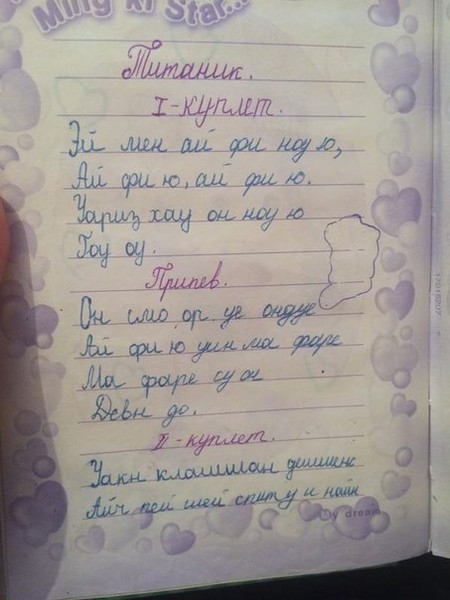 Ming ki Star...
Титаник.
I-куплет.
Эй мен ай фи ноу ю,
Ай фи ю, ай фи ю.
Уариз хау он ноу ю
Гоу оу.
Припев.
Он смо ор уе ондуе
Ай фи ю уин ма фаре
Ма фаре су он
Девн до.
II-куплет.
Уакн клашман
Айч пей шей спит у и найн
My dream
17019207